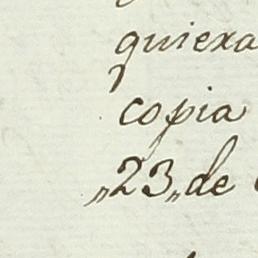 quiera
copia
„23„ de